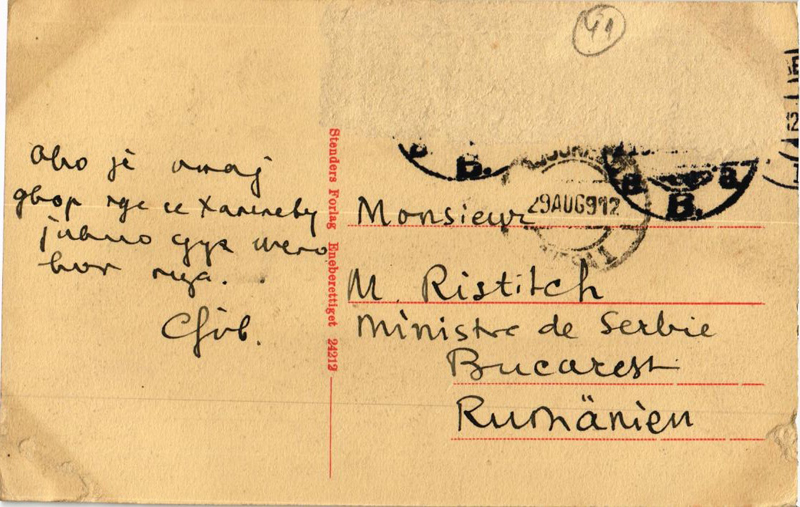 41
29AUG912
B.
B.
Ово је онај
двор где се Хамлету
јавио дух њего
вог оца.
Stenders Forlag Eneberettiget 24212
Monsieur
M. Ristitch
Ministre de Serbie
Bucarest
Rumänien